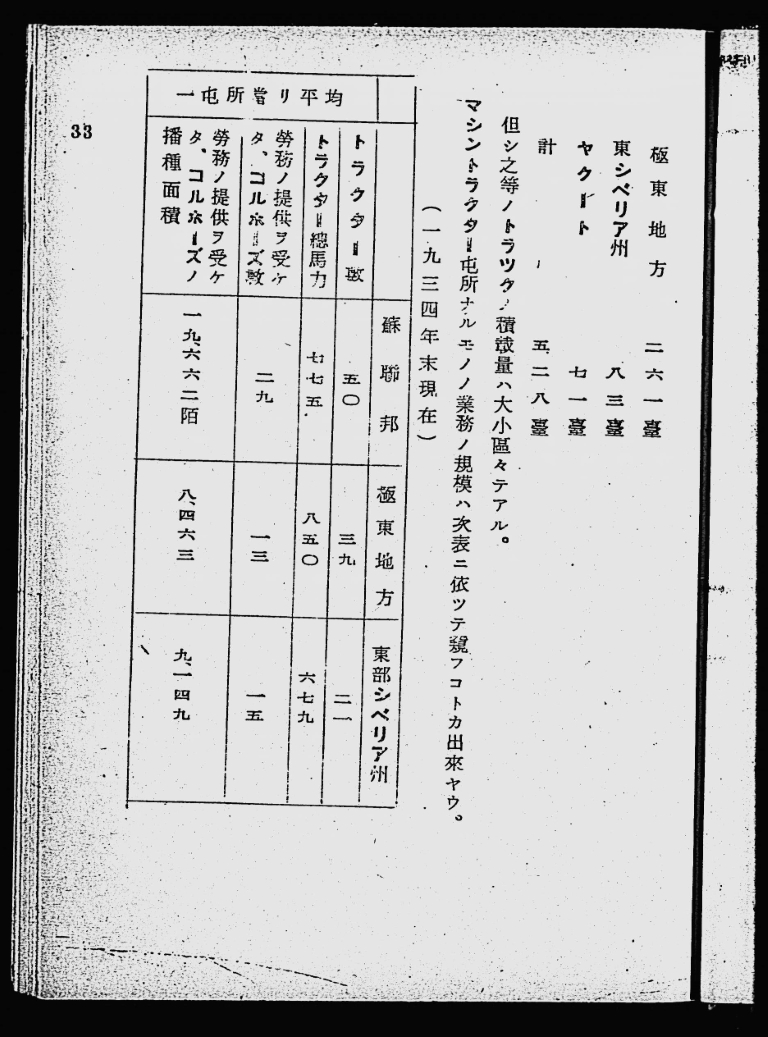 極東地方 二六一臺
東シベリア州 八三臺
ヤクート 七一臺
計 五二八臺
但シ之等ノトラツクノ積載量ハ大小區々テアル。
マシントラクター屯所ナルモノノ業務ノ規模ハ次表ニ依ツテ窺フコトカ出來ヤウ。
(一九三四年末現在)
蘇聯邦 極東地方 東部シベリア州
一屯所當リ平均
トラクター數 五〇 三九 二一
トラクター總馬力 七七五 八五〇 六七九
勞務ノ提供ヲ受ケ
タ、コルホーズ數 二九 一三 一五
勞務ノ提供ヲ受ケ
タ、コルホーズノ
播種面積 一九、六六二陌 八、四六三 九、一四九
33